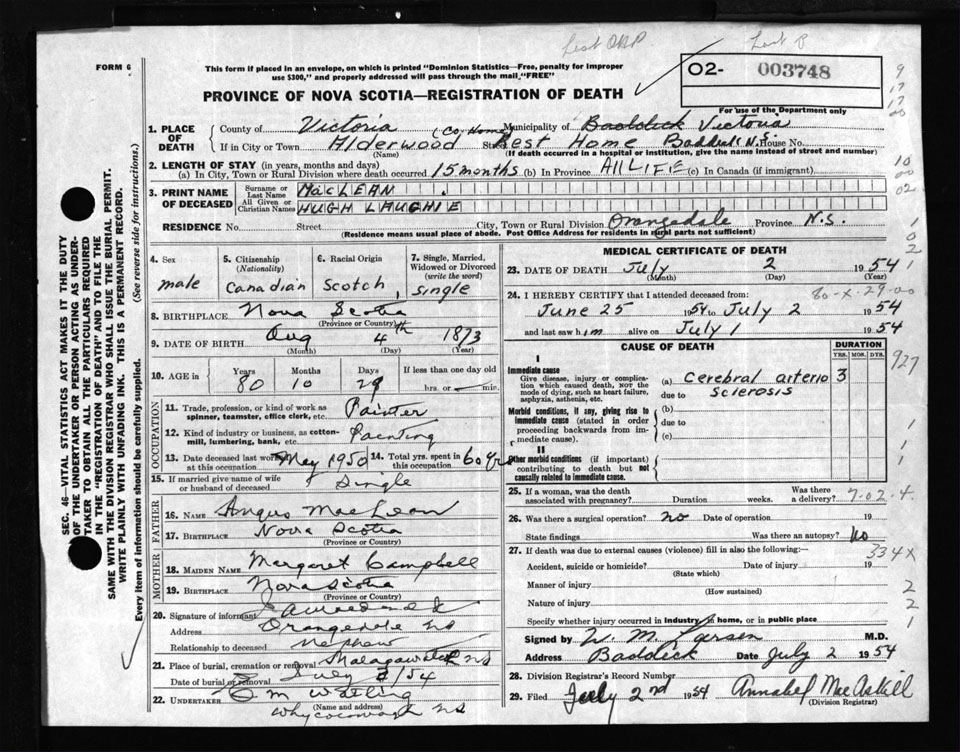 Lest P
FORM 6
This form if placed in an envelope, on which is printed "Dominion Statistics—Free, penalty for improper
use $300," and properly addressed will pass through the mail "FREE"
O2- 003748
PROVINCE OF NOVA SCOTIA—REGISTRATION OF DEATH
For use of the Department only
1. PLACE OF DEATH
County of Victoria (Co. Home) Municipality of Baddeck Victoria
If in City or Town Alderwood Street Rest Home Baddeck N.S. House No.
(Name) (If death occurred in a hospital or institution, give the name instead of street and number)
2. LENGTH OF STAY (in years, months and days)
(a) In City, Town or Rural Division where death occurred 15 months (b) In Province All LIFE (c) In Canada (if immigrant)
3. PRINT NAME OF DECEASED
Surname or Last Name MACLEAN
All Given or Christian Names HUGH LAUGHIE
RESIDENCE No. Street City, Town or Rural Division Orangedale Province N.S.
(Residence means usual place of abode. Post Office Address for residents in rural parts not sufficient)
4. Sex male
5. Citizenship (Nationality) Canadian
6. Racial Origin Scotch
7. Single, Married, Widowed or Divorced (write the word) Single
8. BIRTHPLACE Nova Scotia
(Province or Country)
9. DATE OF BIRTH Aug 4th 1873
(Month) (Day) (Year)
10. AGE in Years 80 Months 10 Days 29 If less than one day hrs. or min.
OCCUPATION
11. Trade, profession, or kind of work as
spinner, teamster, office clerk, etc. Painter
12. Kind of industry or business, as cotton-
mill, lumbering, bank, etc. Painting
13. Date deceased last worked at this occupation May 1950 14. Total yrs. spent in this occupation 60 yrs
15. If married give name of wife
or husband of deceased Single
FATHER
16. NAME Angus MacLean
17. BIRTHPLACE Nova Scotia
(Province or Country)
MOTHER
18. MAIDEN NAME Margaret Campbell
19. BIRTHPLACE Nova Scotia
(Province or Country)
20. Signature of informant
Address Orangedale NS
Relationship to deceased Nephew
21. Place of burial, cremation or removal Malagawatch NS
Date of burial or removal July /54
22. UNDERTAKER E M Watling
(Name and address)
Whycocomagh NS
MEDICAL CERTIFICATE OF DEATH
23. DATE OF DEATH July 2 1954
(Month) (Day) (Year)
24. I HEREBY CERTIFY that I attended deceased from:
80-X-29-00
June 25 1954 to July 2 1954
and last saw him alive on July 1 1954
CAUSE OF DEATH
DURATION
YRS. MOS. DYS.
I
Immediate cause
Give disease, injury or complica-
tion which caused death, NOT the
mode of dying, such as heart failure,
asphyxia, asthenia, etc.
(a) Cerebral arterio 3
due to Sclerosis
Morbid conditions, if any, giving rise to
immediate cause (stated in order
proceeding backwards from im-
mediate cause).
(b)
due to
(c)
II
Other morbid conditions (if important)
contributing to death but not
causally related to immediate cause.
25. If a woman, was the death
associated with pregnancy? Duration weeks. Was there a delivery? 7-02-4
26. Was there a surgical operation? no Date of operation 19
State findings Was there an autopsy? No
27. If death was due to external causes (violence) fill in also the following:—
334X
Accident, suicide or homicide? Date of injury 19
(State which)
Manner of injury
(How sustained)
Nature of injury
Specify whether injury occurred in industry, in home, or in public place
Signed by W. M. Larsen M.D.
Address Baddeck Date July 2 1954
28. Division Registrar's Record Number
29. Filed July 2nd 1954 Annabel MacAskill
(Division Registrar)
9
17
17
00
10
00
02
1
0
2
1
927
1
1
1
2
2
1
SEC. 46—VITAL STATISTICS ACT MAKES IT THE DUTY
OF THE UNDERTAKER OR PERSON ACTING AS UNDER-
TAKER TO OBTAIN ALL THE PARTICULARS REQUIRED
IN THE "REGISTRATION OF DEATH" AND TO FILE THE
SAME WITH THE DIVISION REGISTRAR WHO SHALL ISSUE THE BURIAL PERMIT.
WRITE PLAINLY WITH UNFADING INK. THIS IS A PERMANENT RECORD.
Every item of information should be carefully supplied. (See reverse side for instructions.)